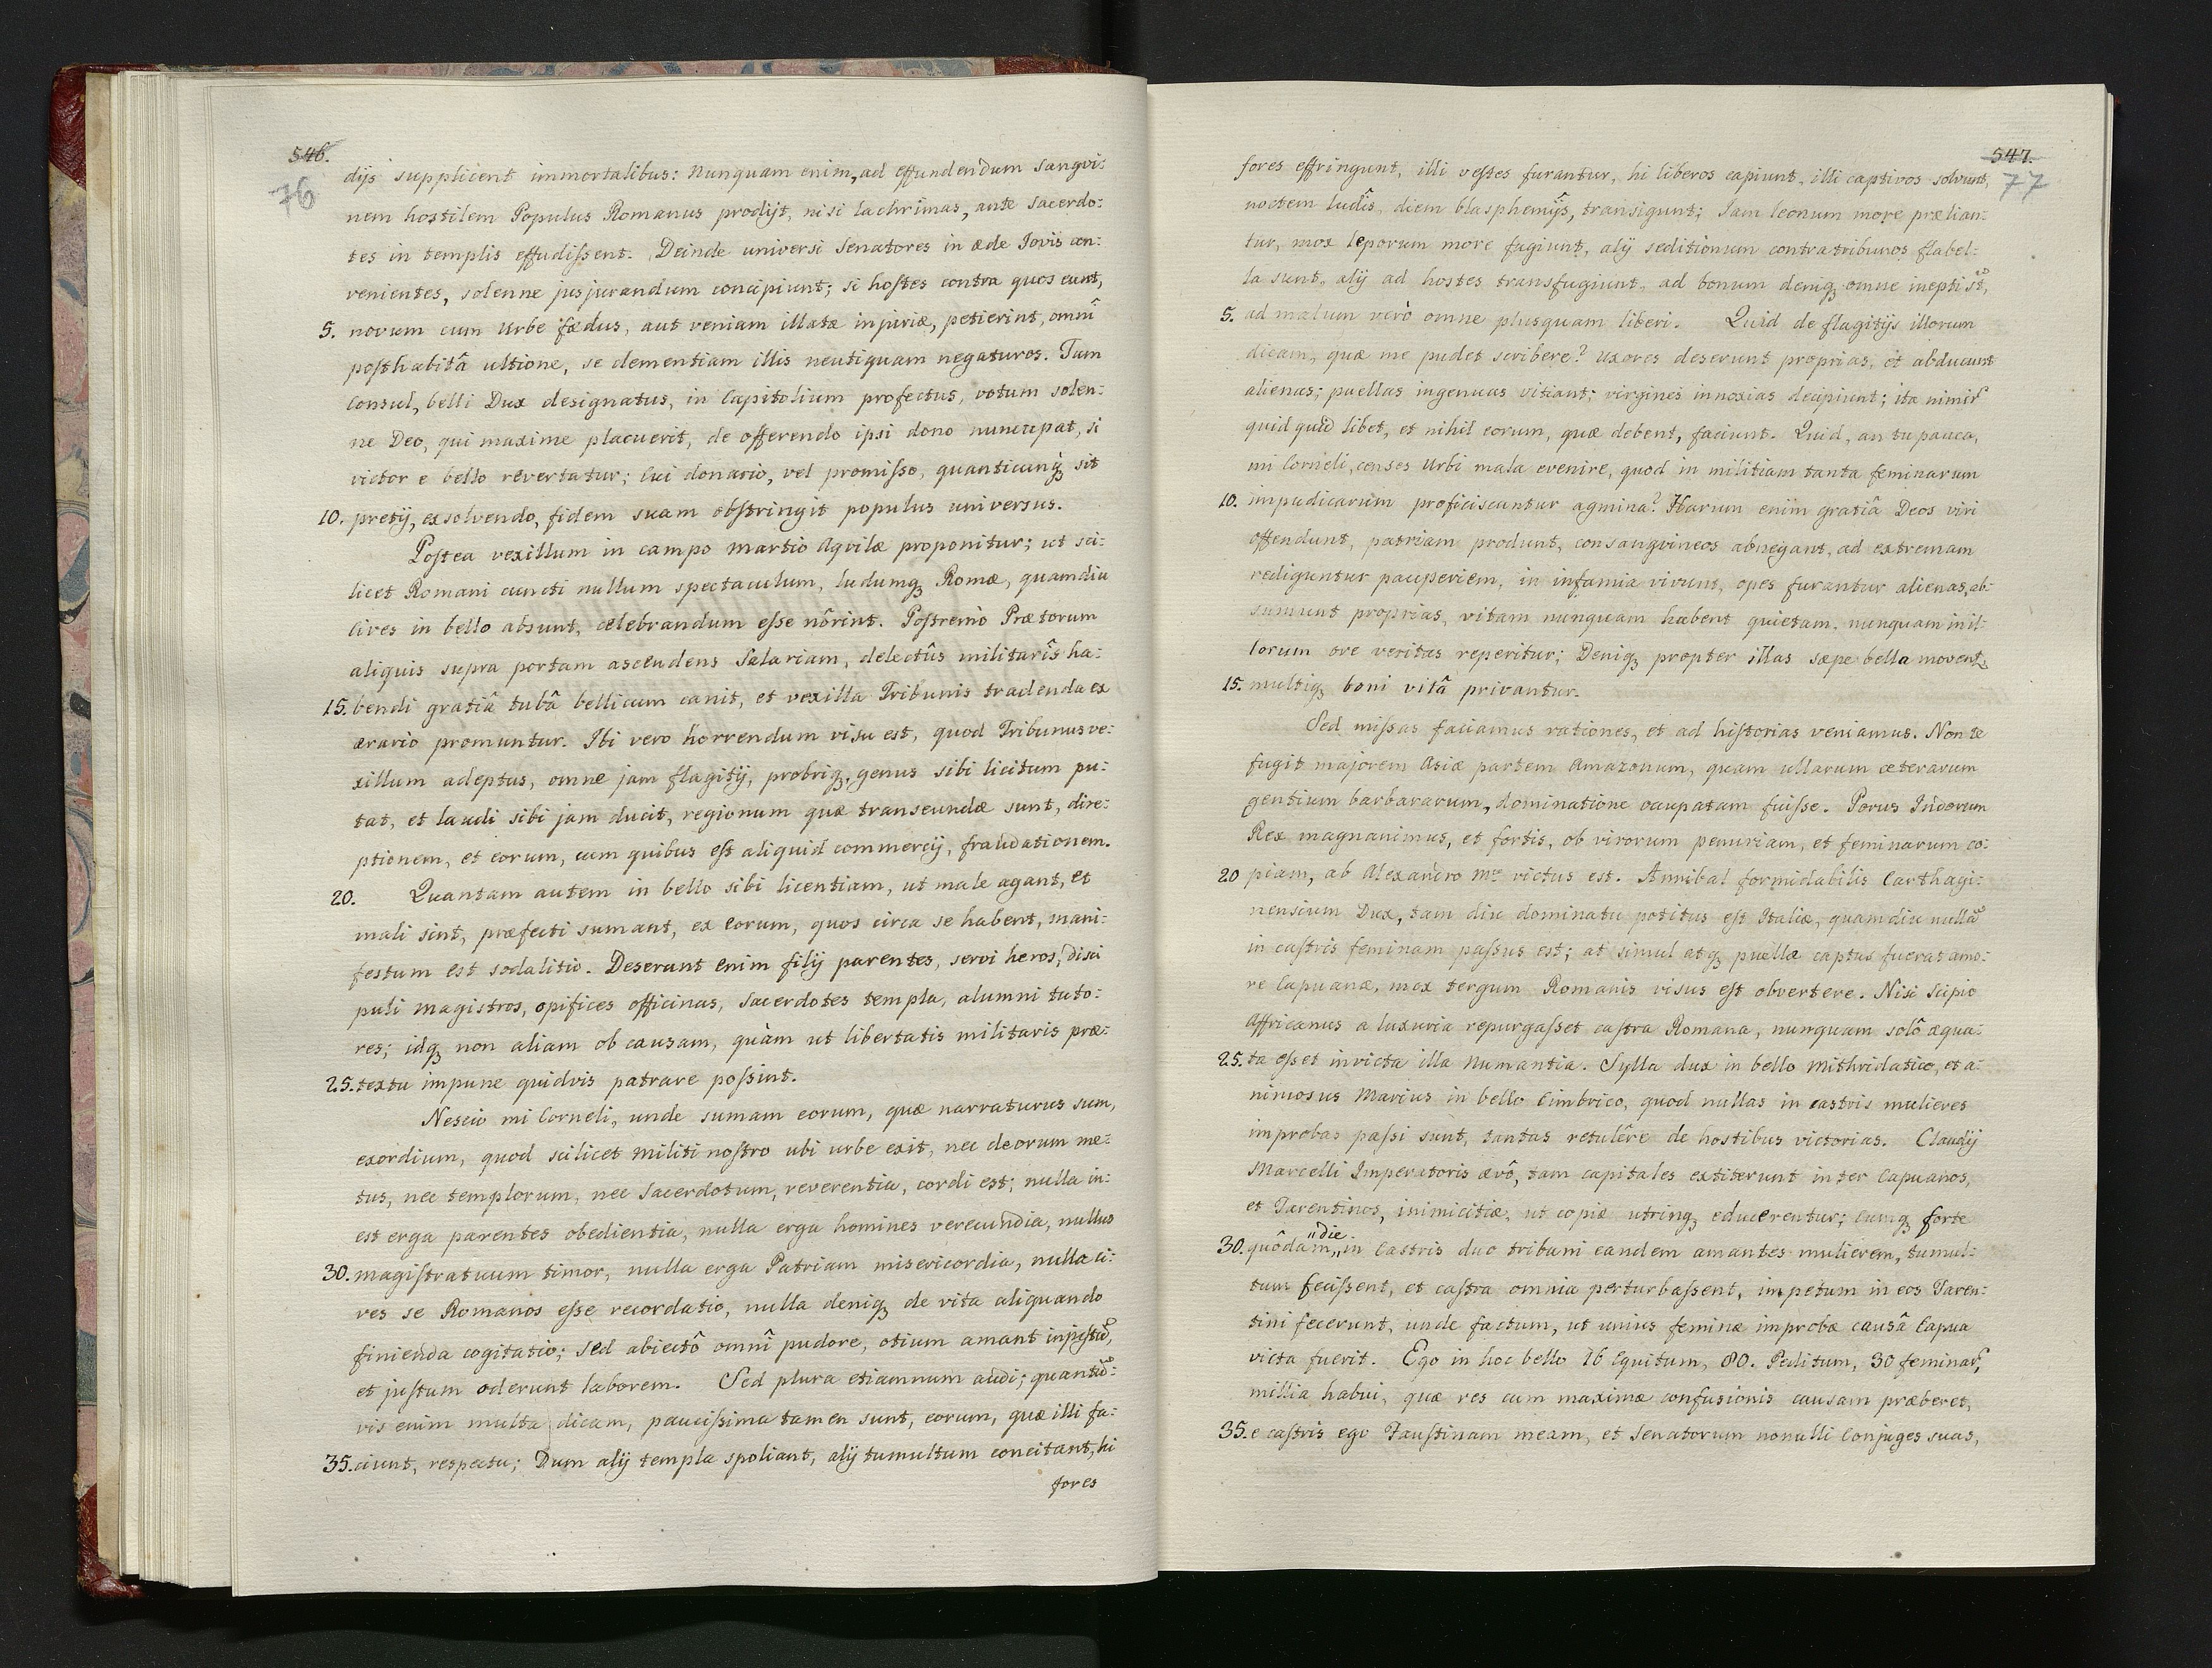 546.
76
dijs supplicent immortalibus: Nunquam enim, ad effundendum sangvi:
nem hostilem Populus Romanus prodijt, nisi lachrimas, ante sacerdo:
tes in templis effudissent. Deinde universi Senatores in æde Iovis con:
venientes, solenne jusjurandum concipiunt; si hostes contra quos eunt,
5. novum cum Urbe fœdus, aut veniam illatæ injuriæ, petierint, omnî
posthabitâ ultione, se clementiam illis neutiquam negaturos. Tum
Consul, belli Dux designatus, in Capitolium profectus, votum solen:
ne Deo, qui maxime placuerit, de offerendo ipsi dono nuncupat, si
victor e bello revertatur; Cui donario, vel promisso, quanticunq; sit
10. pretij, exsolvendo, fidem suam obstringit populus universus.
Postea vexillum in campo Martio Aqvilæ proponitur; ut sci:
licet Romani cuncti nullum spectaculum, ludumq; Romæ, quamdiu
Cives in bello absunt, celebrandum esse nôrint. Postremò Prætorum
aliquis supra portam ascendens Salariam, delectûs militarîs ha:
15. bendi gratiâ tubâ bellicum canit, et vexilla Tribunis tradenda ex
ærario promuntur. Ibi vero horrendum visu est, quod Tribunus ve:
xillum adeptus, omne jam flagitij, probriq; genus sibi licitum pu:
tat, et laudi sibi jam ducit, regionum quæ transeundæ sunt, dire:
ptionem, et eorum, cum quibus est aliquid commercij, fraudationem.
20. Quantam autem in bello sibi licentiam, ut male agant, et
mali sint, præfecti sumant, ex eorum, quos circa se habent, mani:
festum est sodalitio. Deserunt enim filij parentes, servi heros, disci
puli magistros, opifices officinas, Sacerdotes templa, alumni tuto:
res; idq; non aliam ob causam, quàm ut libertatis militaris præ:
25. textu impune quidvis patrare possint.
Nescio mi Corneli, unde sumam eorum, quæ narraturus sum,
exordium, quod scilicet militi nostro ubi urbe exit, nec deorum me:
tus, nec templorum, nec Sacerdotum, reverentia, cordi est; nulla in:
est erga parentes obedientia, nulla erga homines verecundia, nullus
30. magistratuum timor, nulla erga Patriam misericordia, nulla ci:
ves se Romanos esse recordatio, nulla deniq; de vita aliquando
finienda cogitatio; sed abiectô omnî pudore, otium amant injustũ,
et justum oderunt laborem. Sed plura etiamnum audi; quantũ:
vis enim multa dicam, paucissima tamen sunt, eorum, quæ illi fa:
35. ciunt, respectu; Dum alij templa spoliant, alij tumultum concitant, hi
fores
547.
77
fores effringunt, illi vestes furantur, hi liberos capiunt, illi captivos solvunt,
noctem ludîs, diem blasphemîjs, transigunt; Jam leonum more prælian:
tur, mox leporum more fugiunt, alij seditionum contra tribunos flabel:
la sunt, alij ad hostes transfugiunt, ad bonum deniq; omne inepti sũt,
5. ad malum verò omne plusquam liberi. Quid de flagitijs illorum
dicam, quæ me pudet scribere? Uxores deserunt proprias, et abducunt
alienas; puellas ingenuas vitiant; virgines innoxias decipiunt; ita nimir̃
quidquid libet, et nihil eorum, quæ debent, faciunt. Quid, an tu pauca,
mi Corneli, censes Urbi mala evenire, quod in militiam tanta feminarum
10. impudicarum proficiscantur agmina? Harum enim gratiâ Deos viri
offendunt, patriam produnt, consangvineos abnegant, ad extremam
rediguntur pauperiem, in infamia vivunt, opes furantur alienas, ab:
sumunt proprias, vitam nunquam habent quietam, nunquam in il:
lorum ore veritas reperitur; Deniq; propter illas sæpe bella movent:
15. multiq; boni vitâ privantur.
Sed missas faciamus rationes, et ad historias veniamus. Non te
fugit majorem Asiæ partem Amazonum, quam ullarum cæterarum
gentium barbararum, dominatione occupatam fuisse. Porus Indorum
Rex magnanimus, et fortis, ob virorum penuriam, et feminarum co:
20 piam, ab Alexandro M. victus est. Annibal formidabilis Carthagi:
nensium Dux, tam diu dominatu potitus est Italiæ, quamdiu nullã
in castris feminam passus est; at simul atq; puellæ captus fuerat amo:
re Capuanæ, mox tergum Romanis visus est obvertere. Nisi Scipio
Affricanus a luxuria repurgasset castra Romana, nunquam solô æqua:
25. ta esset invicta illa Numantia. Sylla dux in bello Mithridatico, et a:
nimosus Marius in bello Cimbrico, quod nullas in castris mulieres
improbas passi sunt, tantas retulêre de hostibus victorias. Claudij
Marcelli Imperatoris ævô, tam capitales extiterunt inter Capuanos,
et Tarentinos, inimicitiæ, ut copiæ utrinq; educerentur; Cumq; forte
30. quôdam, die in Castris duo tribuni eandem amantes mulierem, tumul:
tum fecissent, et castra omnia perturbassent, impetum in eos Taren:
tini fecerunt, unde factum, ut unius feminæ improbæ causâ Capua
victa fuerit. Ego in hoc bello 16 Equitum, 80. Peditum, 30 feminar̃,
millia habui, quæ res cum maximæ confusionis causam præberet,
35. e castris ego Faustinam meam, et Senatorum nonulli Conjuges suas,